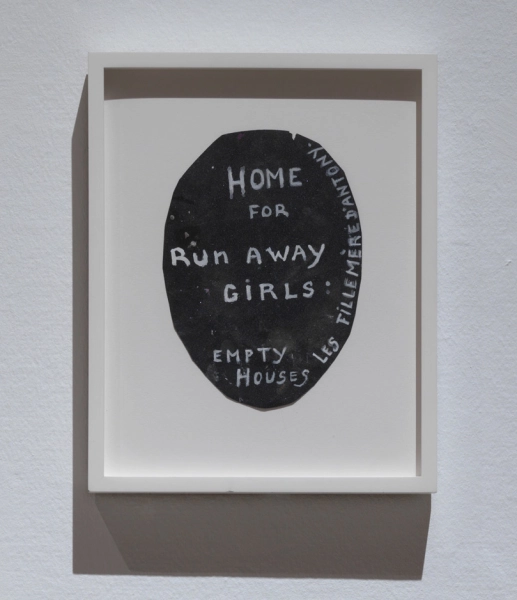 HOME
FOR
RUn AWAY
GiRLS:
EMPTY
HOUSES
LES FILLEMÈRE D'ANTONY.